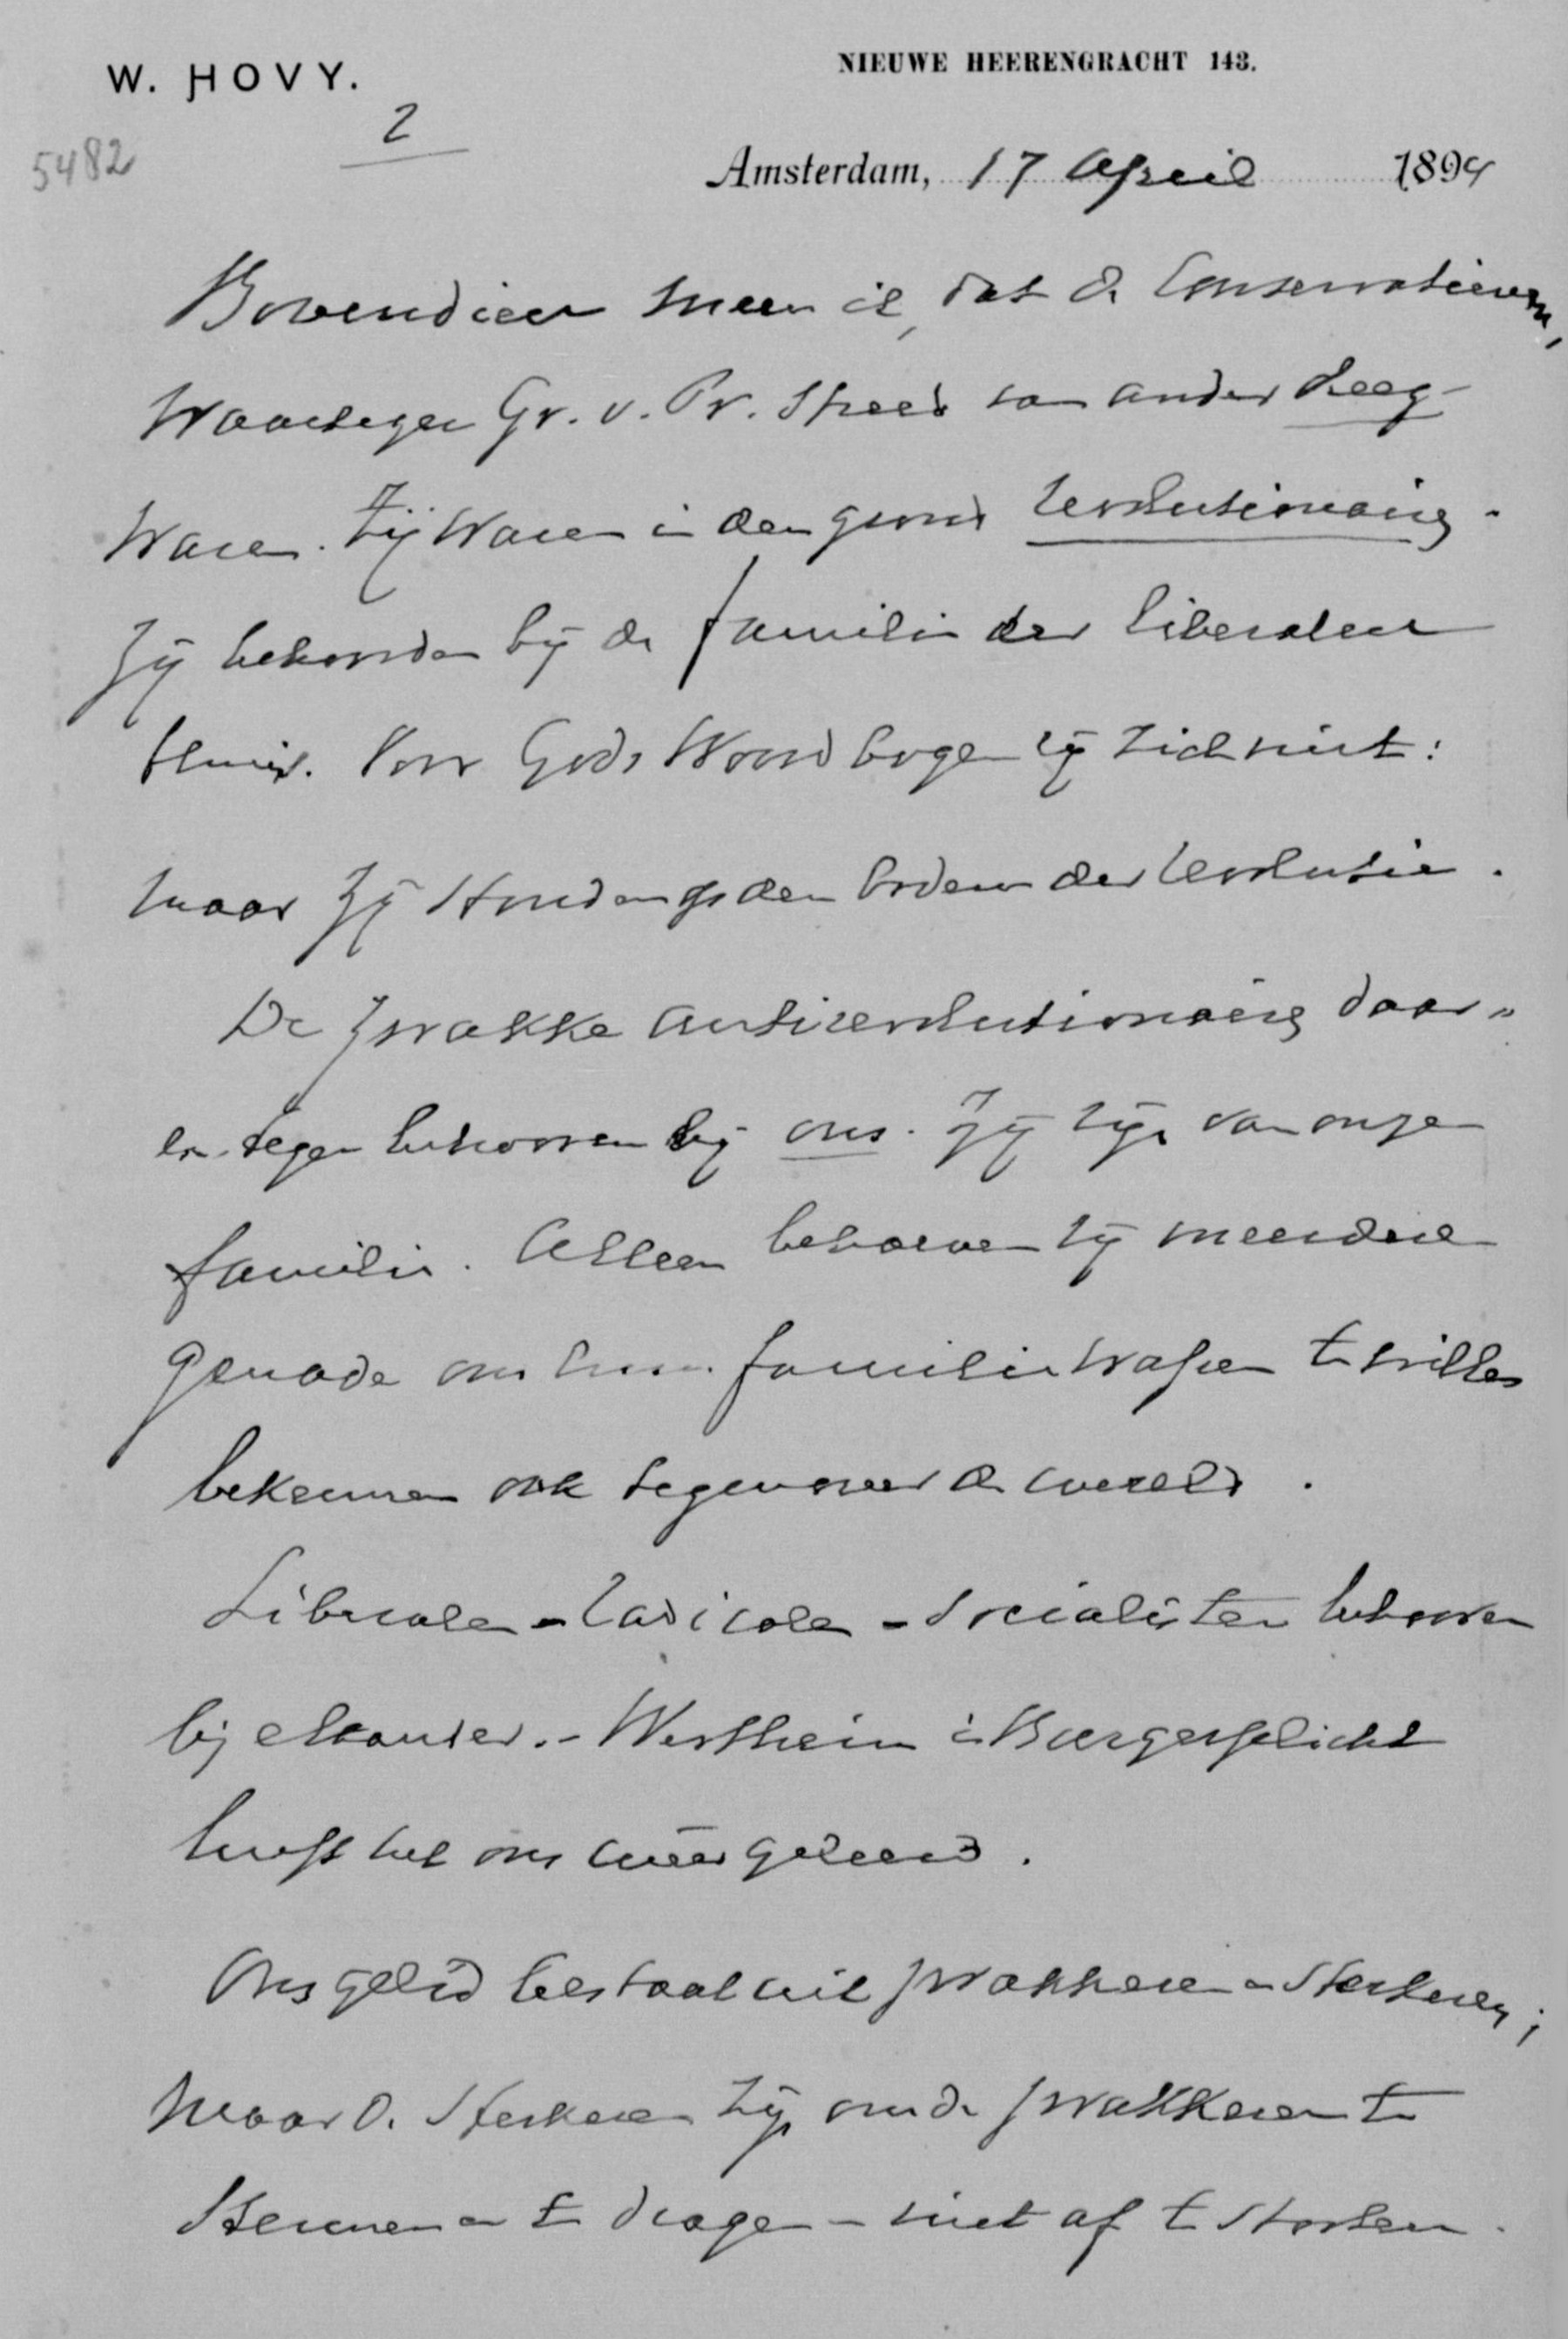 W. HOVY.
NIEUWE HEERENGRACHT 143.
5482
2
Amsterdam, 17 April 1894
Bovendien meen ik, dat de Conservatieven,
Waartegen Gr. v. Pr. streed van ander deeg
Waren. Zij Waren in den grond revolutionair.
Zij behoorden bij de familie der liberalen
thuis. Voor Gods Woord bogen zij zich niet:
maar zij stonden op den bodem der revolutie.
De zwakke antirevolutionair daar-
en-tegen behooren bij ons. Zij zijn van onze
familie. Alleen behoeven zij meerdere
genade om hun familiewapen te willen
bekennen ook tegenover de wereld.
Liberalen - radicalen - socialisten behooren
bij elkander. - Wertheim in Burgerplicht
heeft het ons weer geleerd.
Ons gelid bestaat uit zwakkeren en sterkeren;
maar de sterkeren zijn om de zwakkeren te
steunen en te dragen - niet af te stooten.